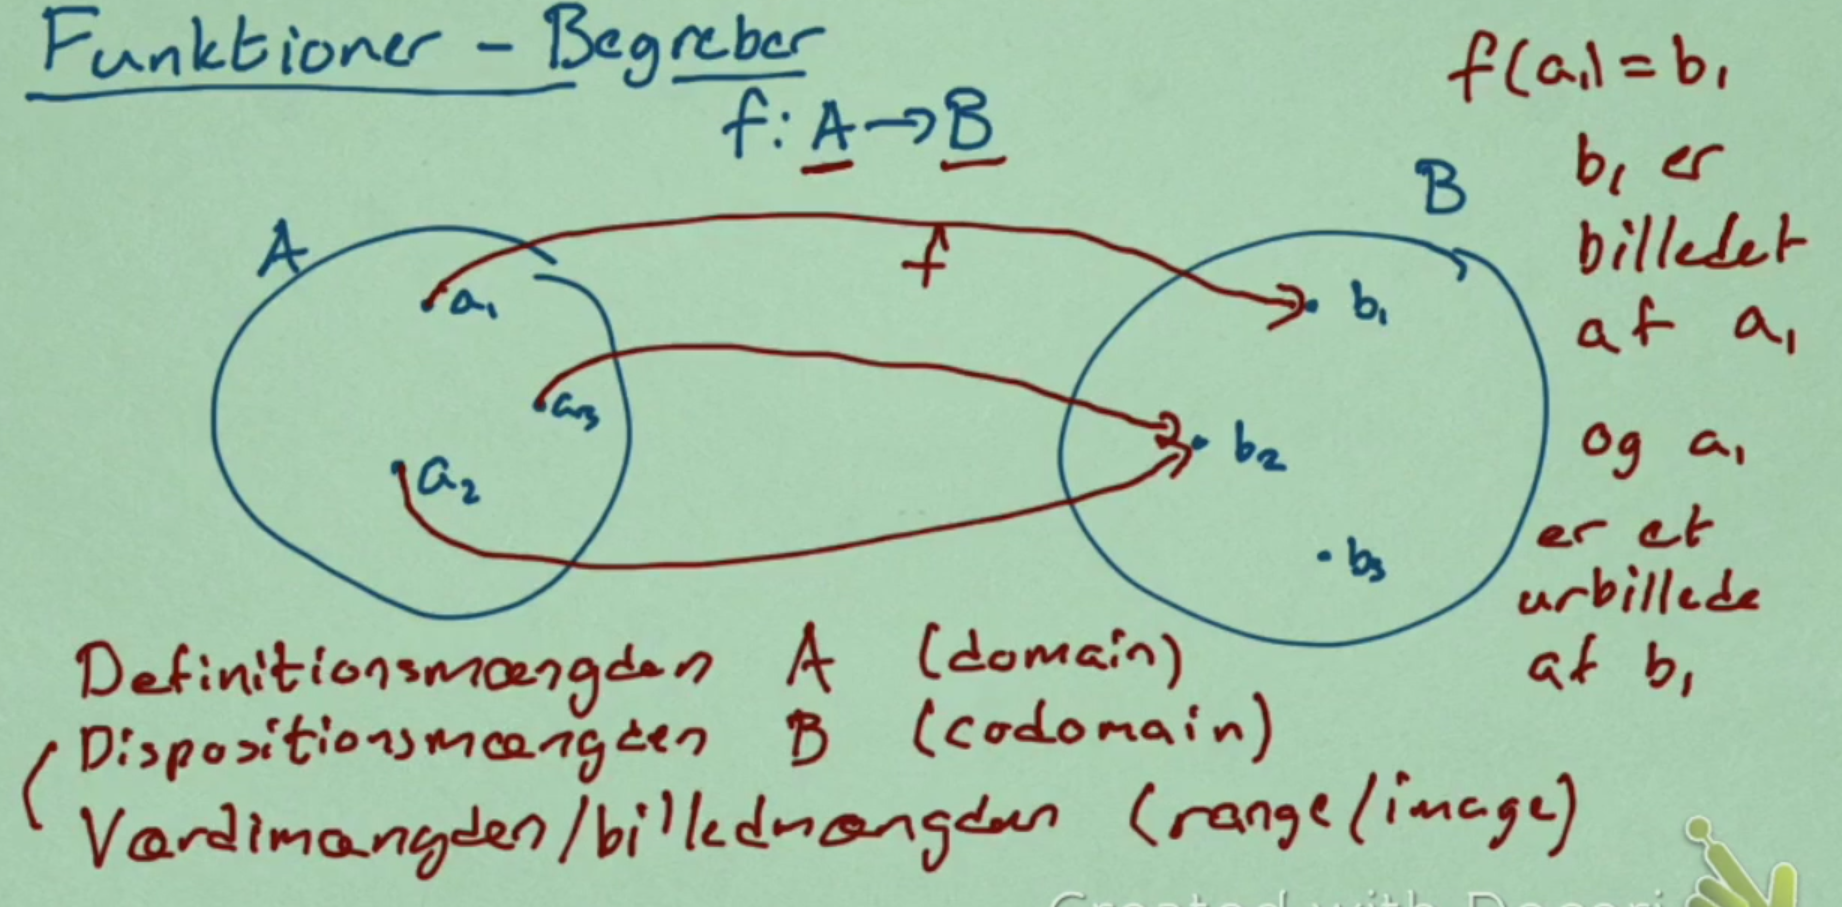 Funktioner - Begreber
f: A → B
f(a₁) = b₁
b₁ er
billedet
af a₁
og a₁
er et
urbillede
af b₁
A
B
f
a₁
a₃
a₂
b₁
b₂
b₃
Definitionsmængden A (domain)
Dispositionsmængden B (codomain)
Værdimængden/billedmængden (range/image)